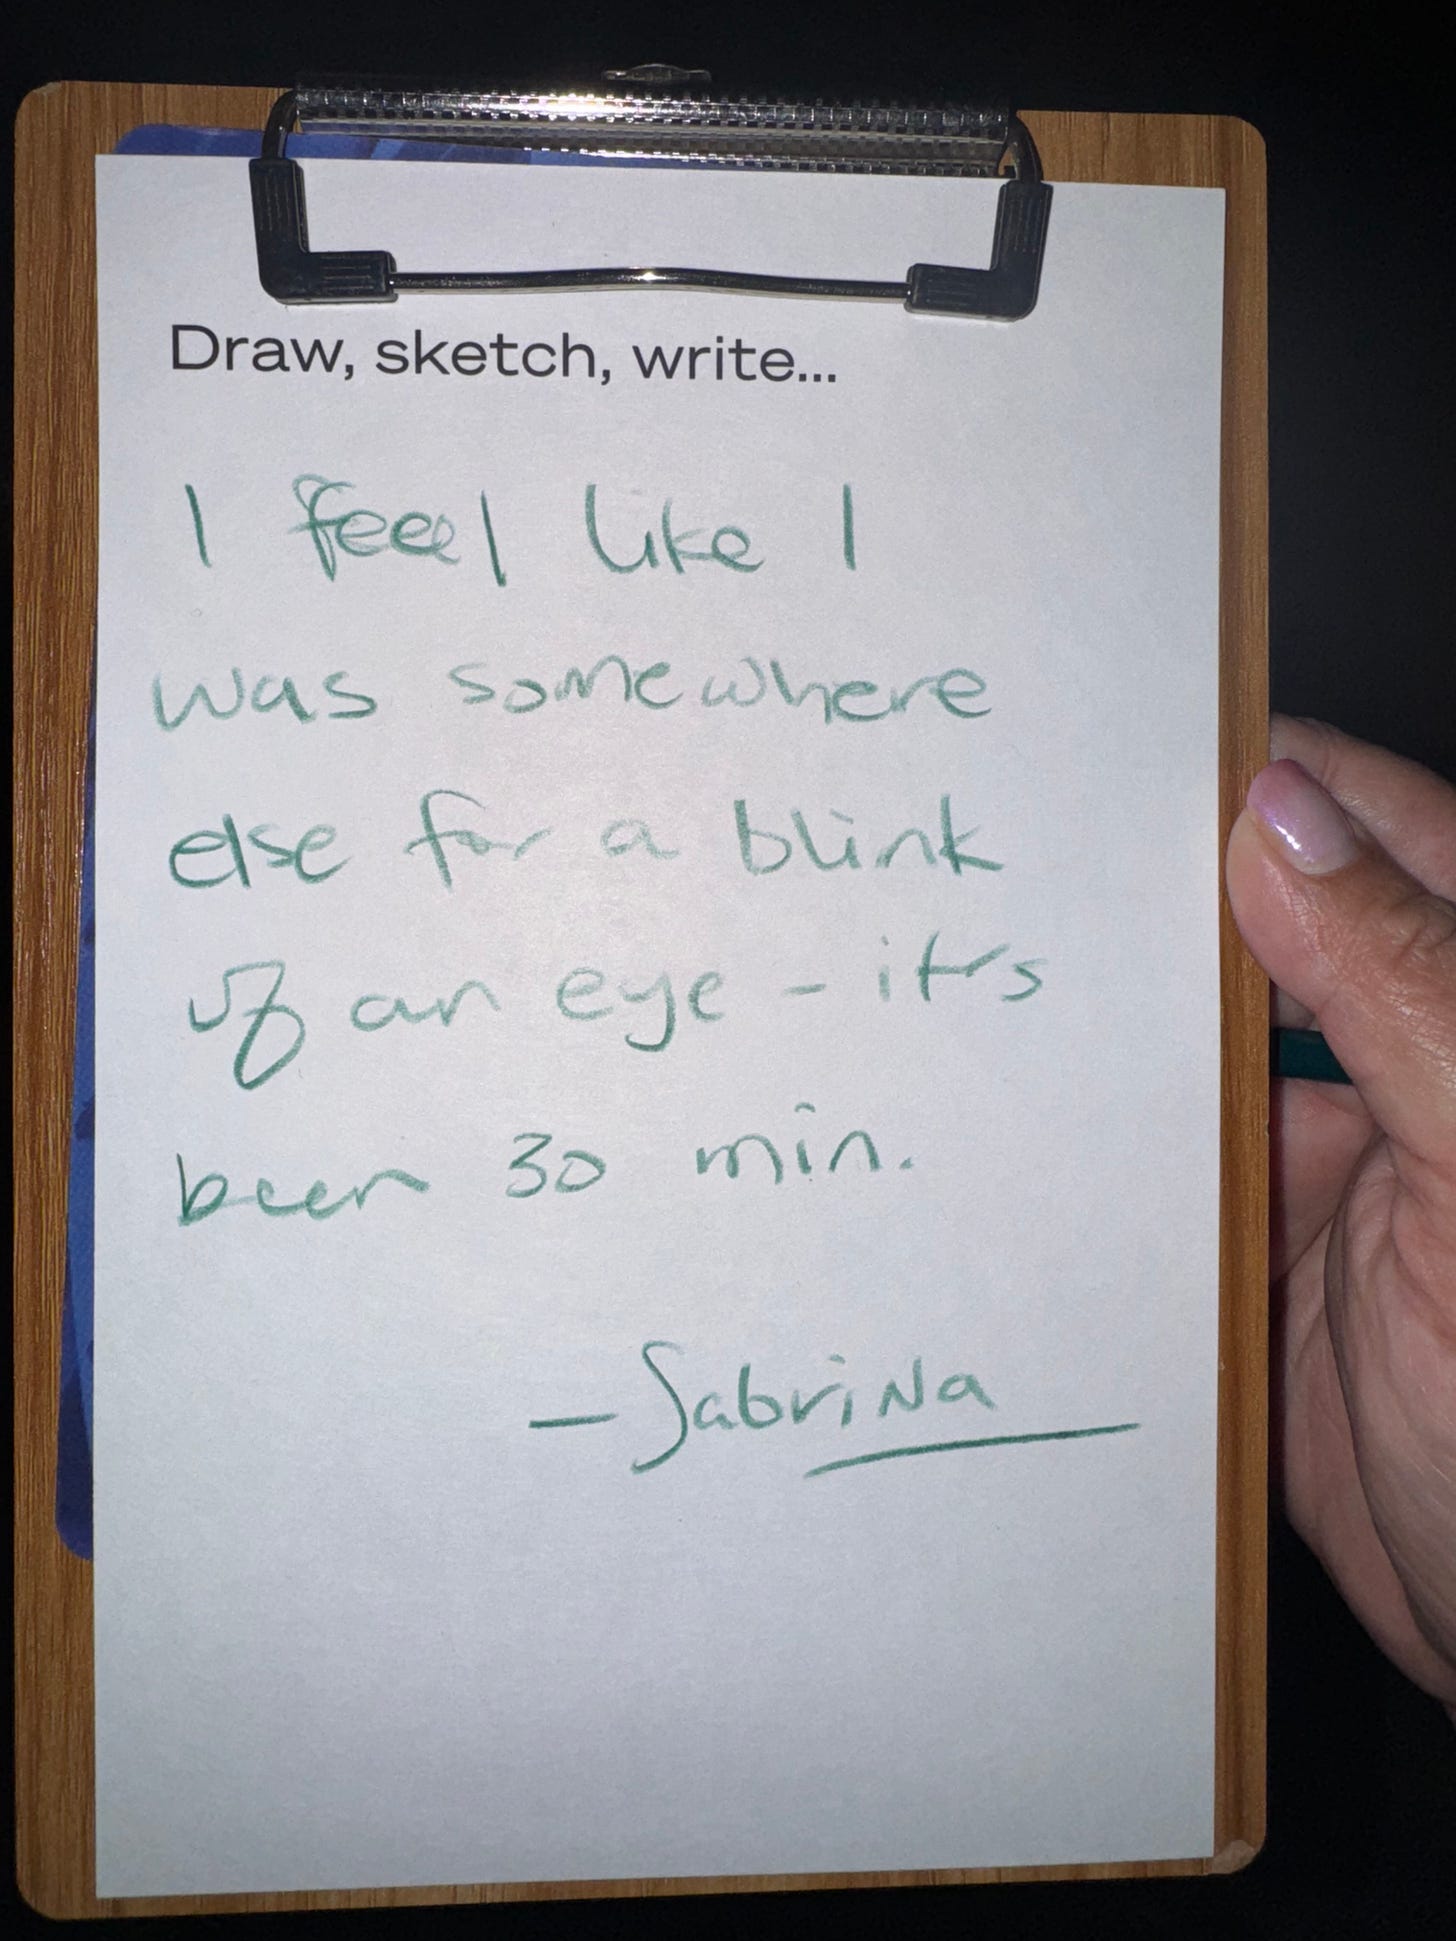 Draw, sketch, write...
I feel like I
was somewhere
else for a blink
of an eye - it's
been 30 min.
- Sabrina